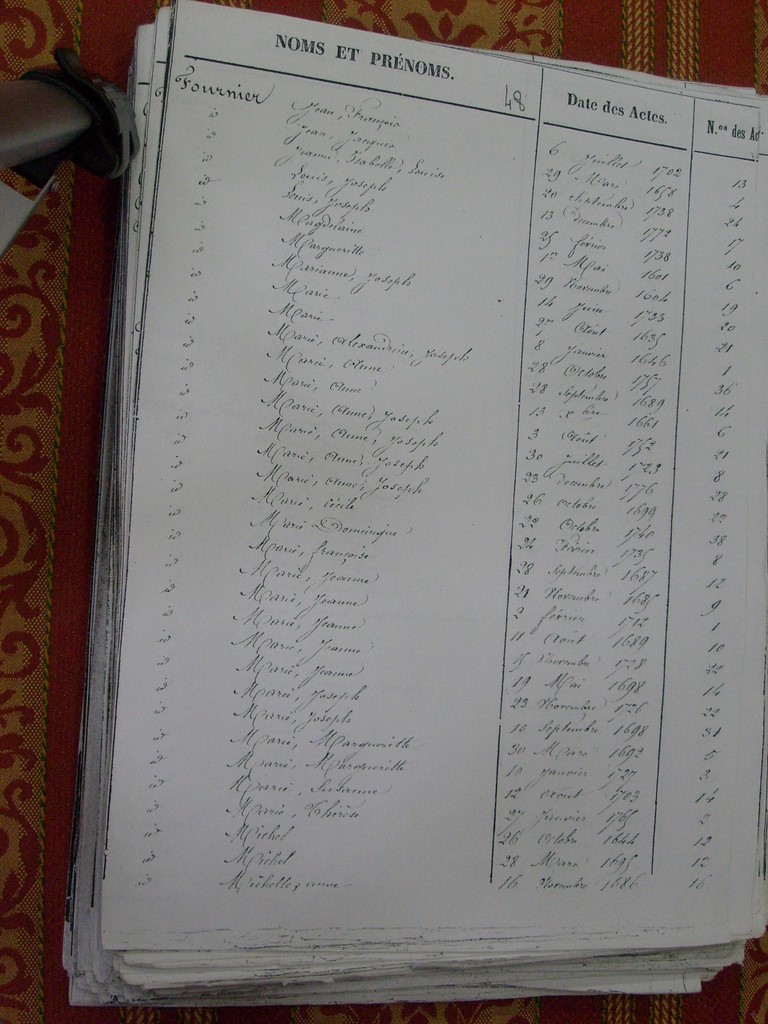 NOMS ET PRÉNOMS. 48 Date des Actes. N.os des Ac
Fournier Jean, François 6 Juillet 1702 13
id Jean, Jacques 29 Mars 1658 4
id Jeanne, Isabelle, Louise 20 Septembre 1738 24
id Louis, Joseph 13 Decembre 1772 17
id Louis, Joseph 25 février 1738 10
id Magdelaine 1er Mai 1601 6
id Margueritte 29 Novembre 1604 19
id Marianne, Joseph 14 Juin 1733 20
id Marie 27 Août 1635 21
id Marie 8 Janvier 1646 1
id Marie, Alexandrine, Joseph 28 Octobre 1757 36
id Marie, Anne 28 Septembre 1689 14
id Marie, Anne 13 Xbre 1661 6
id Marie, Anne, Joseph 3 Août 1752 21
id Marie, Anne, Joseph 30 Juillet 1723 8
id Marie, Anne, Joseph 23 Decembre 1776 28
id Marie, Anne, Joseph 26 Octobre 1699 22
id Marie, Cécile 22 Octobre 1740 38
id Marie Dominique 24 Février 1735 8
id Marie, françoise 28 Septembre 1687 12
id Marie, Jeanne 21 Novembre 1685 9
id Marie, Jeanne 2 février 1712 1
id Marie, Jeanne 11 Août 1689 10
id Marie, Jeanne 15 Novembre 1728 22
id Marie, Jeanne 19 Mai 1698 14
id Marie, Joseph 23 Novembre 1726 22
id Marie, Joseph 10 Septembre 1698 31
id Marie, Margueritte 30 Mars 1692 5
id Marie, Margueritte 10 Janvier 1727 3
id Marie, 12 Août 1703 14
id Marie, Thérèse 27 Janvier 1765 2
id Michel 26 Octobre 1644 12
id Michel 28 Mars 1695 12
id Michelle, anne 16 Novembre 1686 16